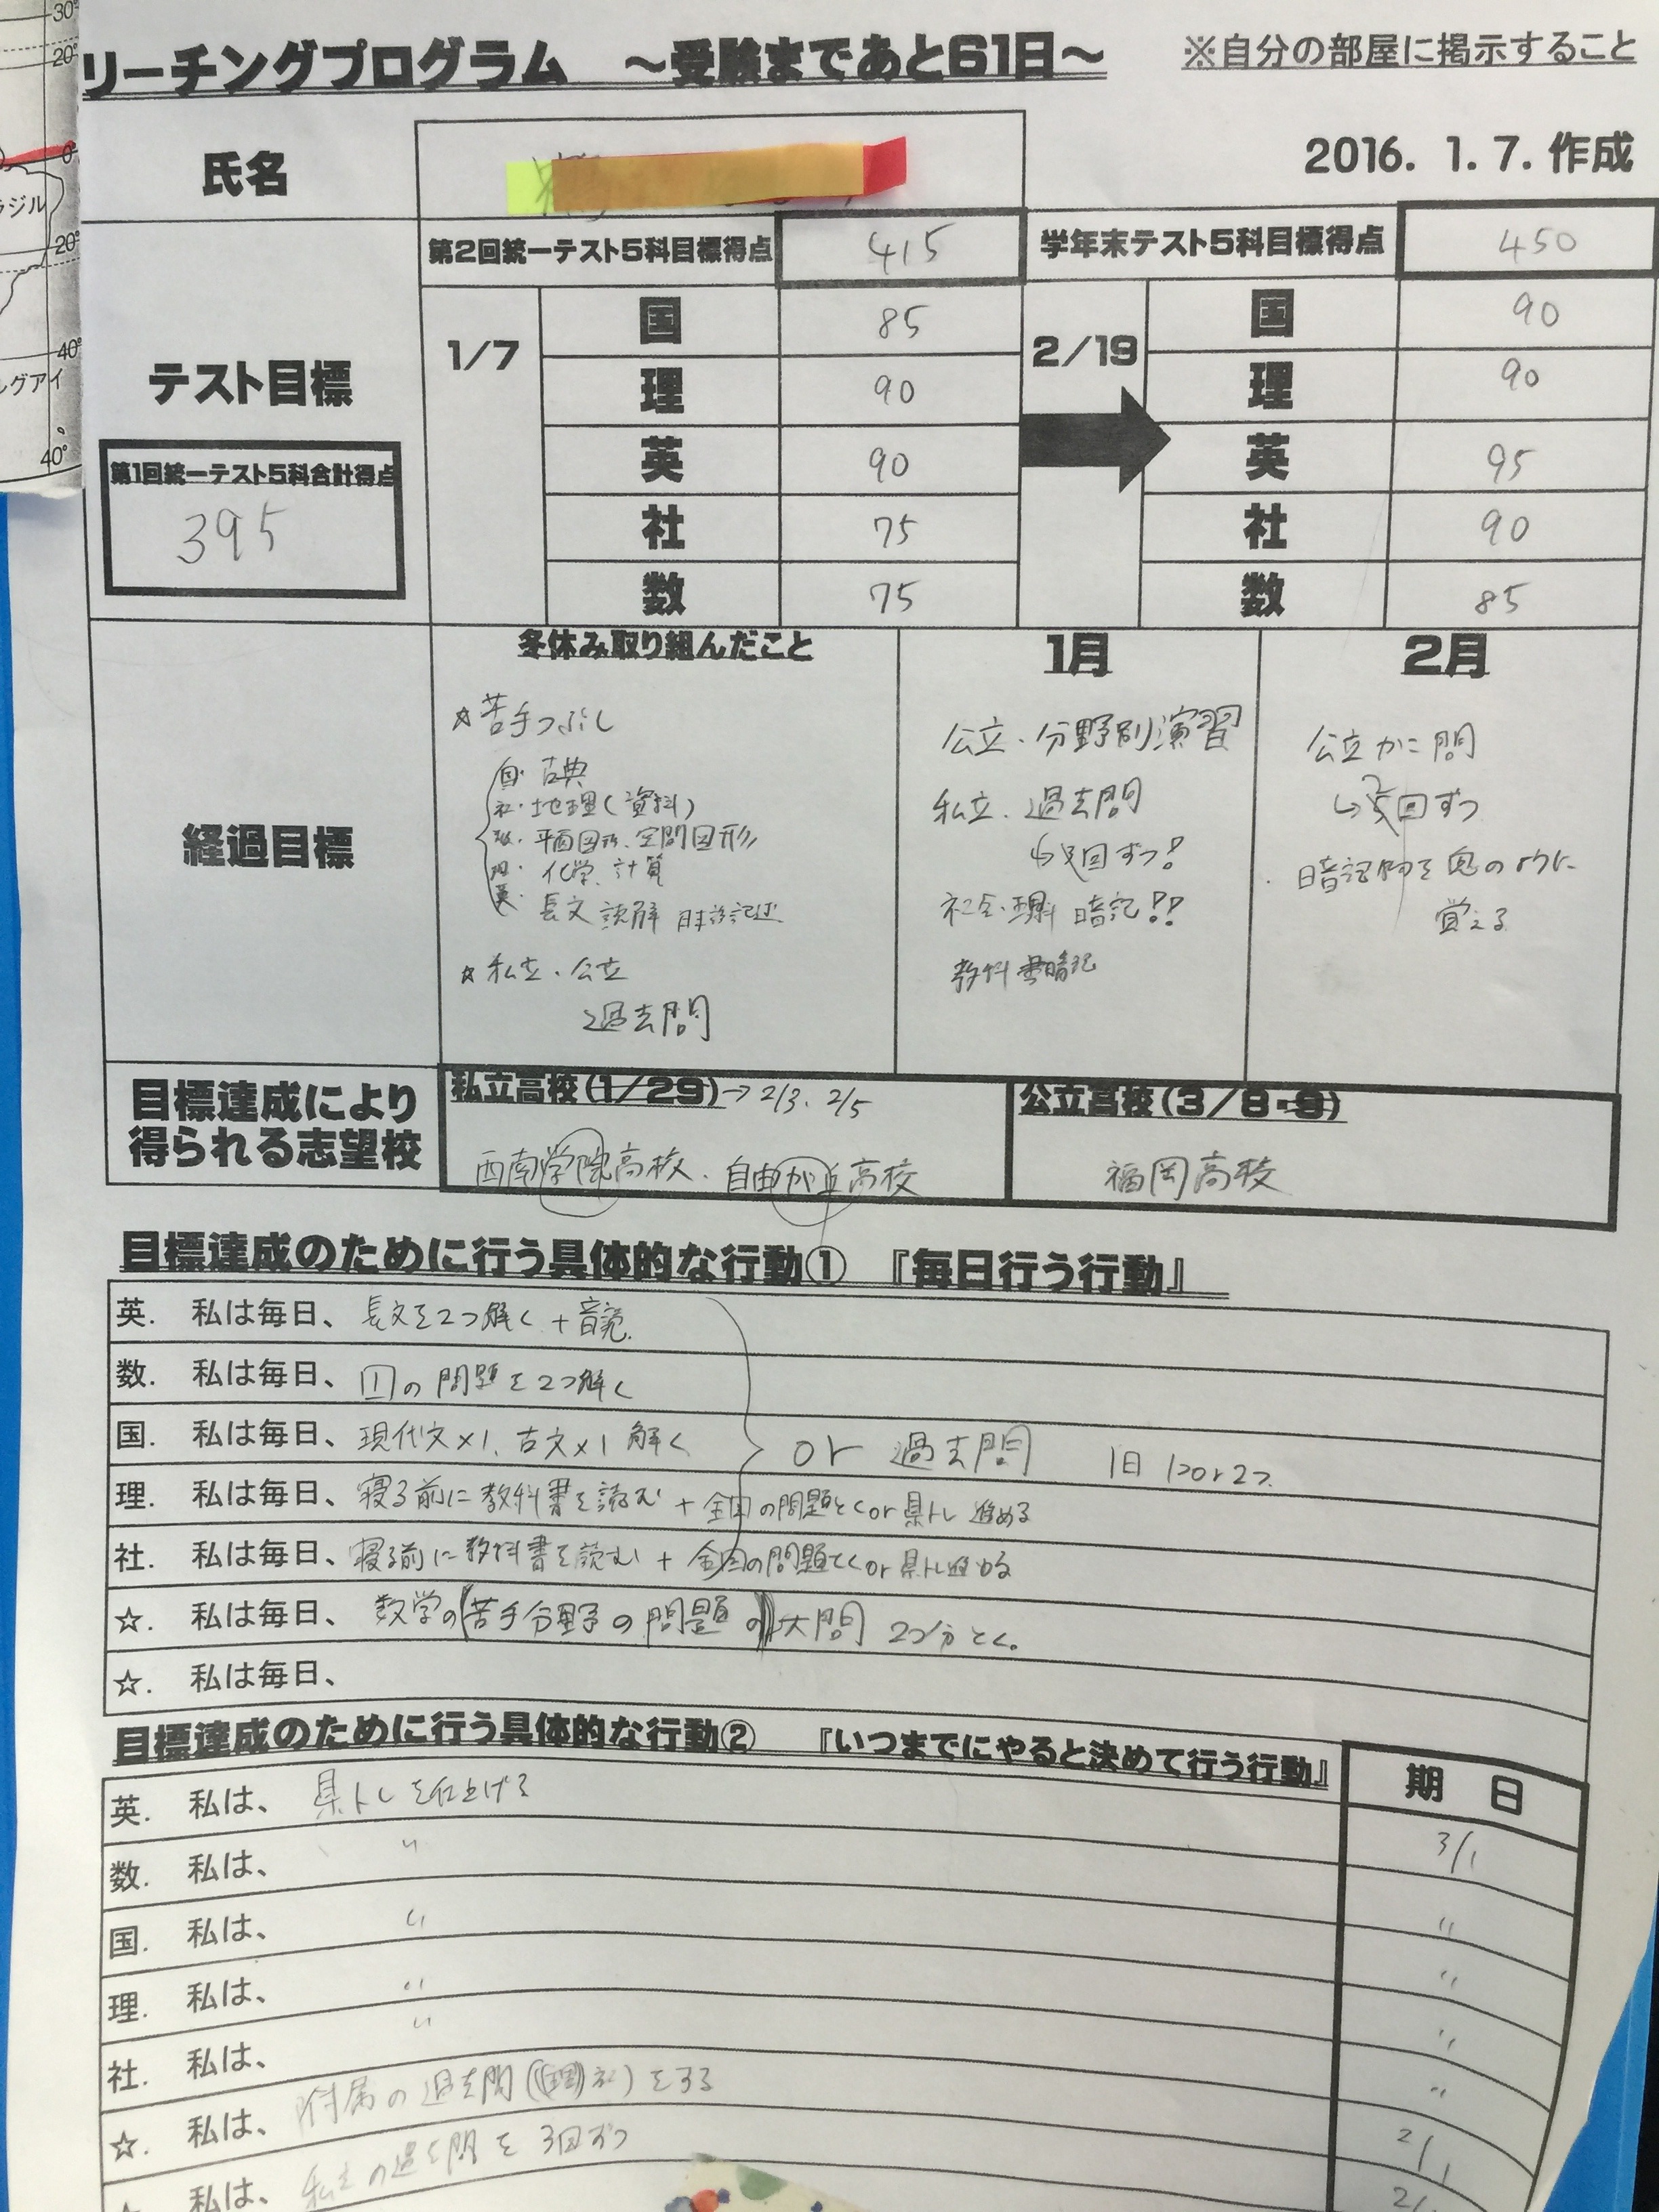 リーチングプログラム ～受験まであと61日～ ※自分の部屋に掲示すること
30°
20°
0°
ラジル
20°
40°
レグアイ
40°
氏名
2016. 1. 7. 作成
テスト目標
第1回統一テスト5科合計得点
395
第2回統一テスト5科目標得点 415
1/7
国 85
理 90
英 90
社 75
数 75
学年末テスト5科目標得点 450
2/19
国 90
理 90
英 95
社 90
数 85
経過目標
冬休み取り組んだこと
☆苦手つぶし
国・古典
社・地理(資料)
数・平面図形、空間図形
理・化学、計算
英・長文読解
☆私立・公立
過去問
1月
公立・分野別演習
私立、過去問
回ずつ!
社会・理科 暗記!!
教科書暗記
2月
公立かこ問
↳ 回ずつ
覚える
目標達成により
得られる志望校
私立高校(1/29)→2/3. 2/5
西南学院高校、自由が丘高校
公立高校(3/8・9)
福岡高校
目標達成のために行う具体的な行動① 『毎日行う行動』
英. 私は毎日、長文を2つ解く + 音読.
数. 私は毎日、の問題を2つ解く
国. 私は毎日、現代文×1、古文×1 解く
or 過去問 1日 1つor2つ
理. 私は毎日、寝る前に教科書を読む + 全国の問題とくor県トレ進める
社. 私は毎日、寝る前に教科書を読む + 全国の問題とくor県トレ進める
☆. 私は毎日、数学の(苦手分野の問題の)大問 2つ分とく。
☆. 私は毎日、
目標達成のために行う具体的な行動② 『いつまでにやると決めて行う行動』 期 日
英. 私は、県トレを仕上げる 3/1
数. 私は、 〃 〃
国. 私は、 〃 〃
理. 私は、 〃 〃
社. 私は、 〃 〃
☆. 私は、附属の過去問(社)をする 2/1
私は、私立の過去問を3回ずつ 2/